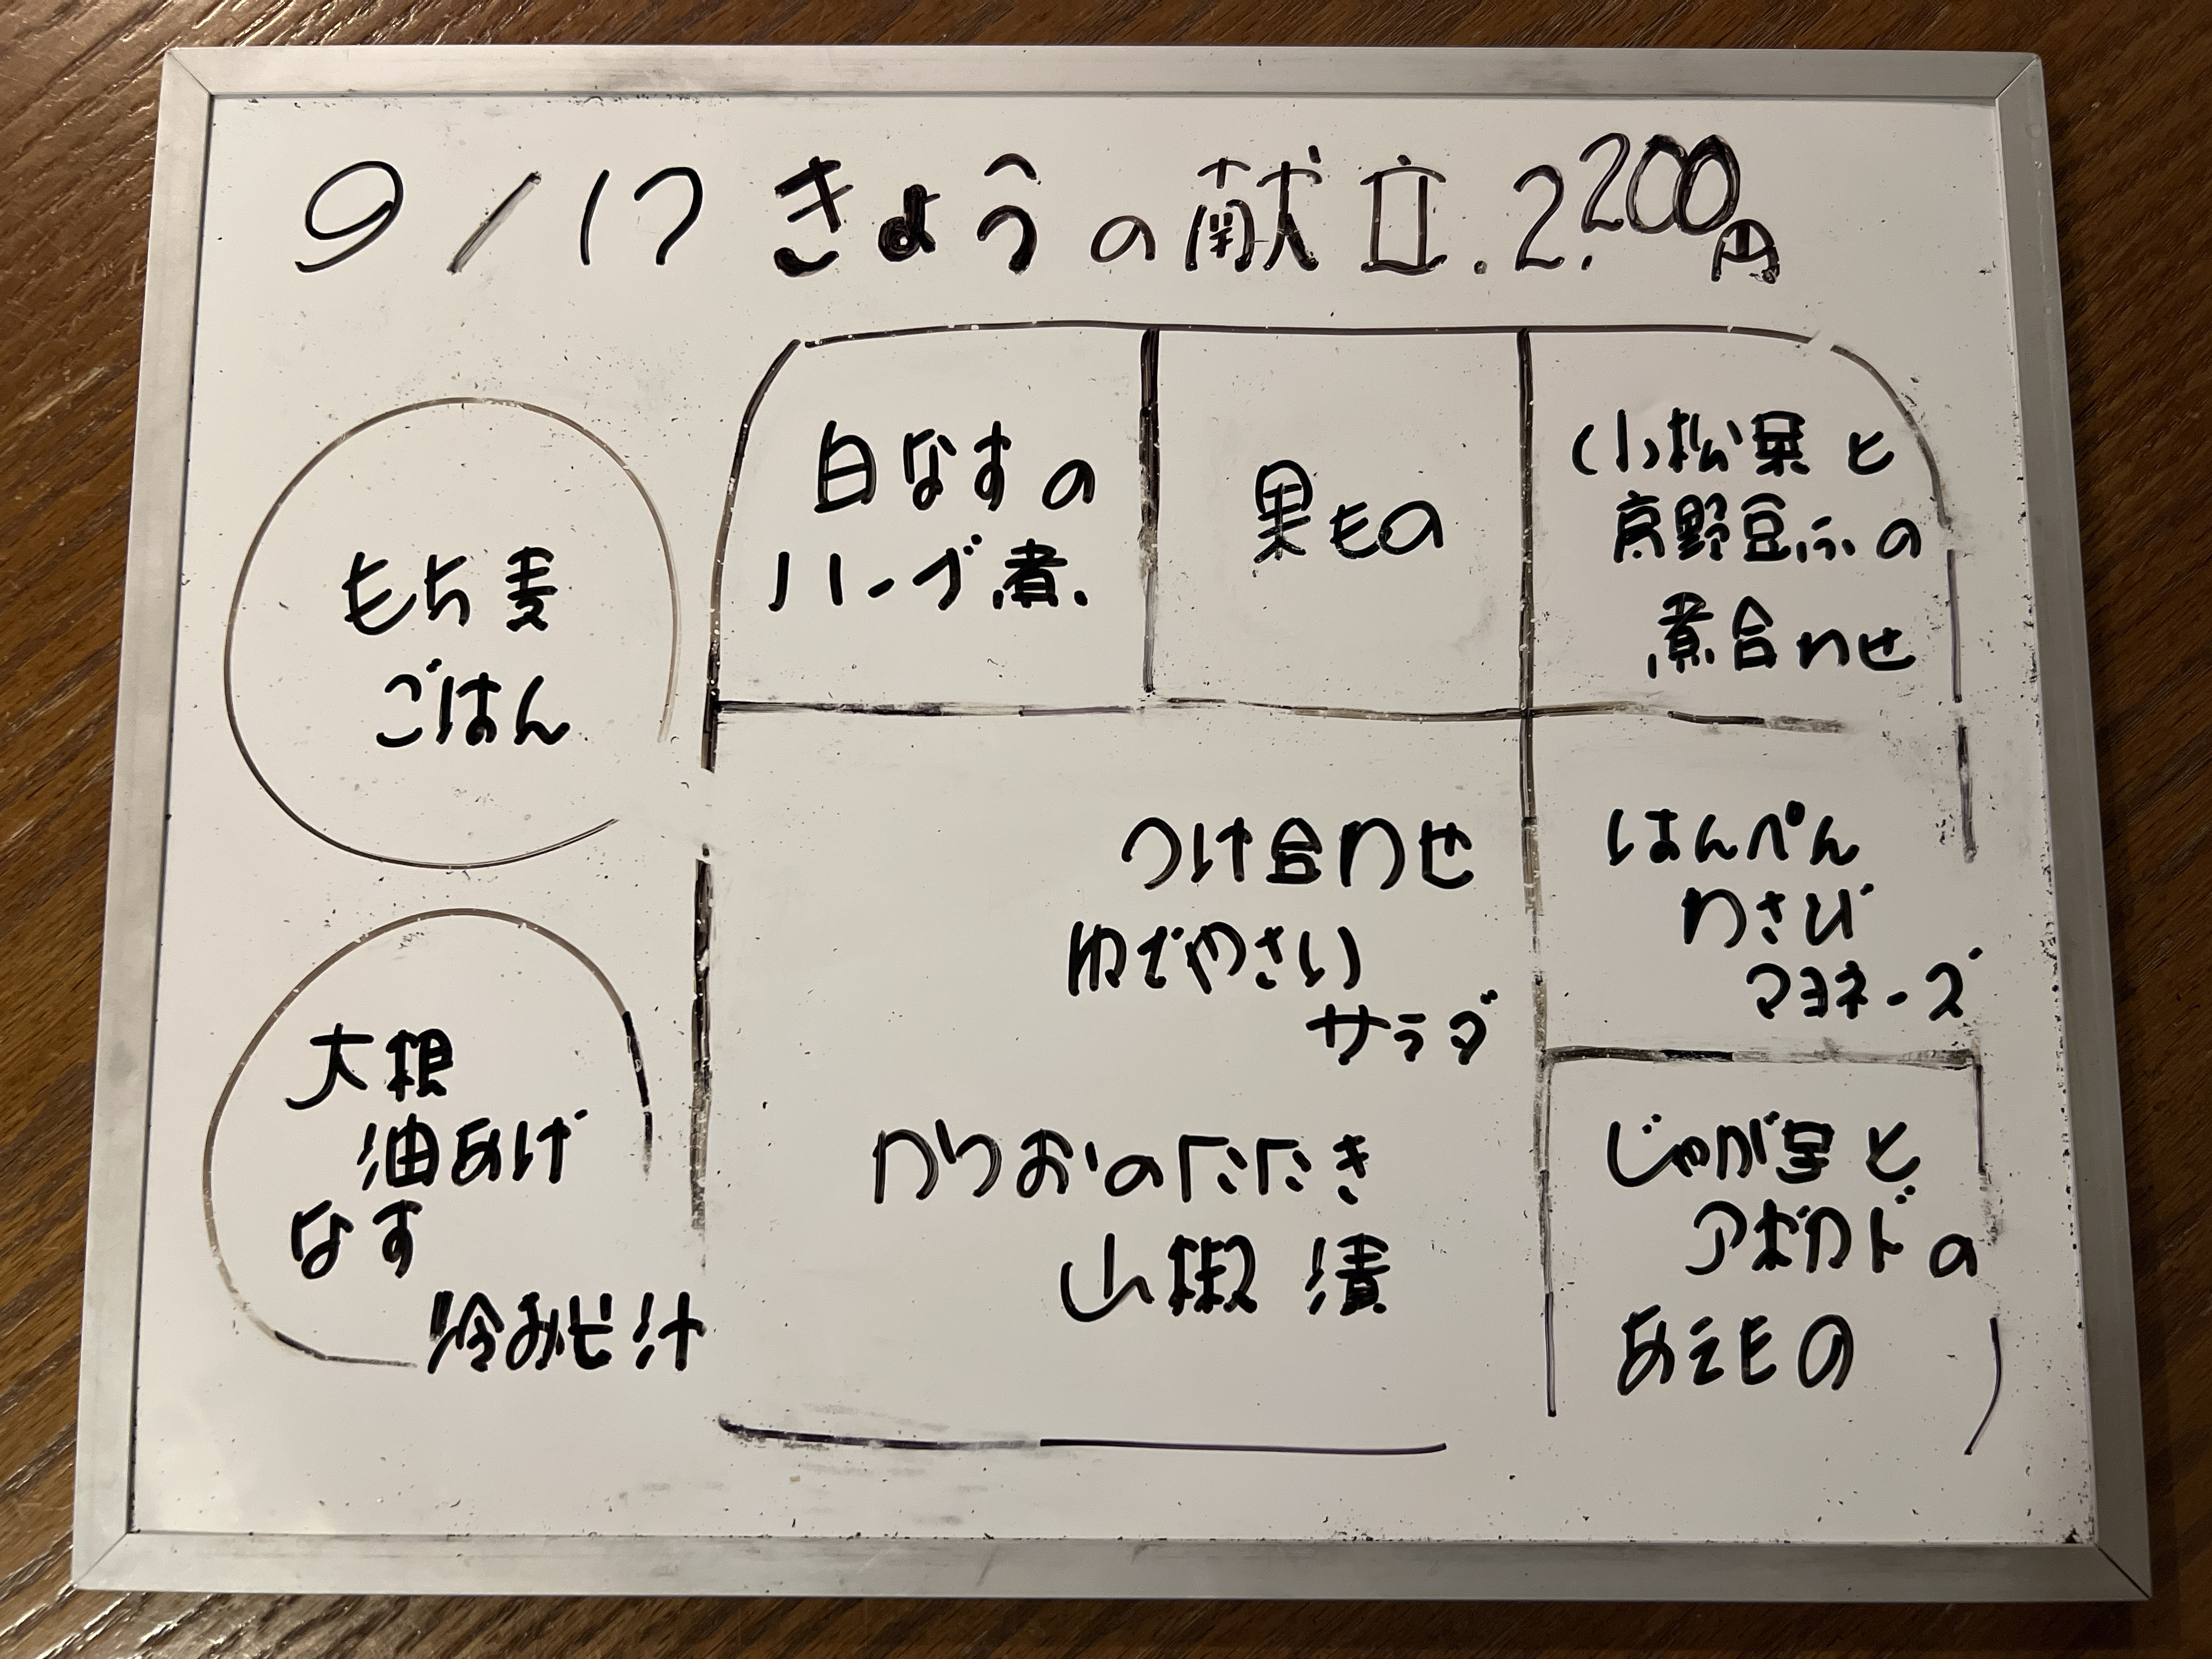 9/17 きょうの献立. 2.200円
もち麦
ごはん
白なすの
ハーブ煮.
果もの
小松菜と
高野豆ふの
煮合わせ
つけ合わせ
ゆでやさい
サラダ
かつおのたたき
山椒漬
はんぺん
わさび
マヨネーズ
じゃが芋と
アボカドの
あえもの
大根
油あげ
なす
冷みそ汁